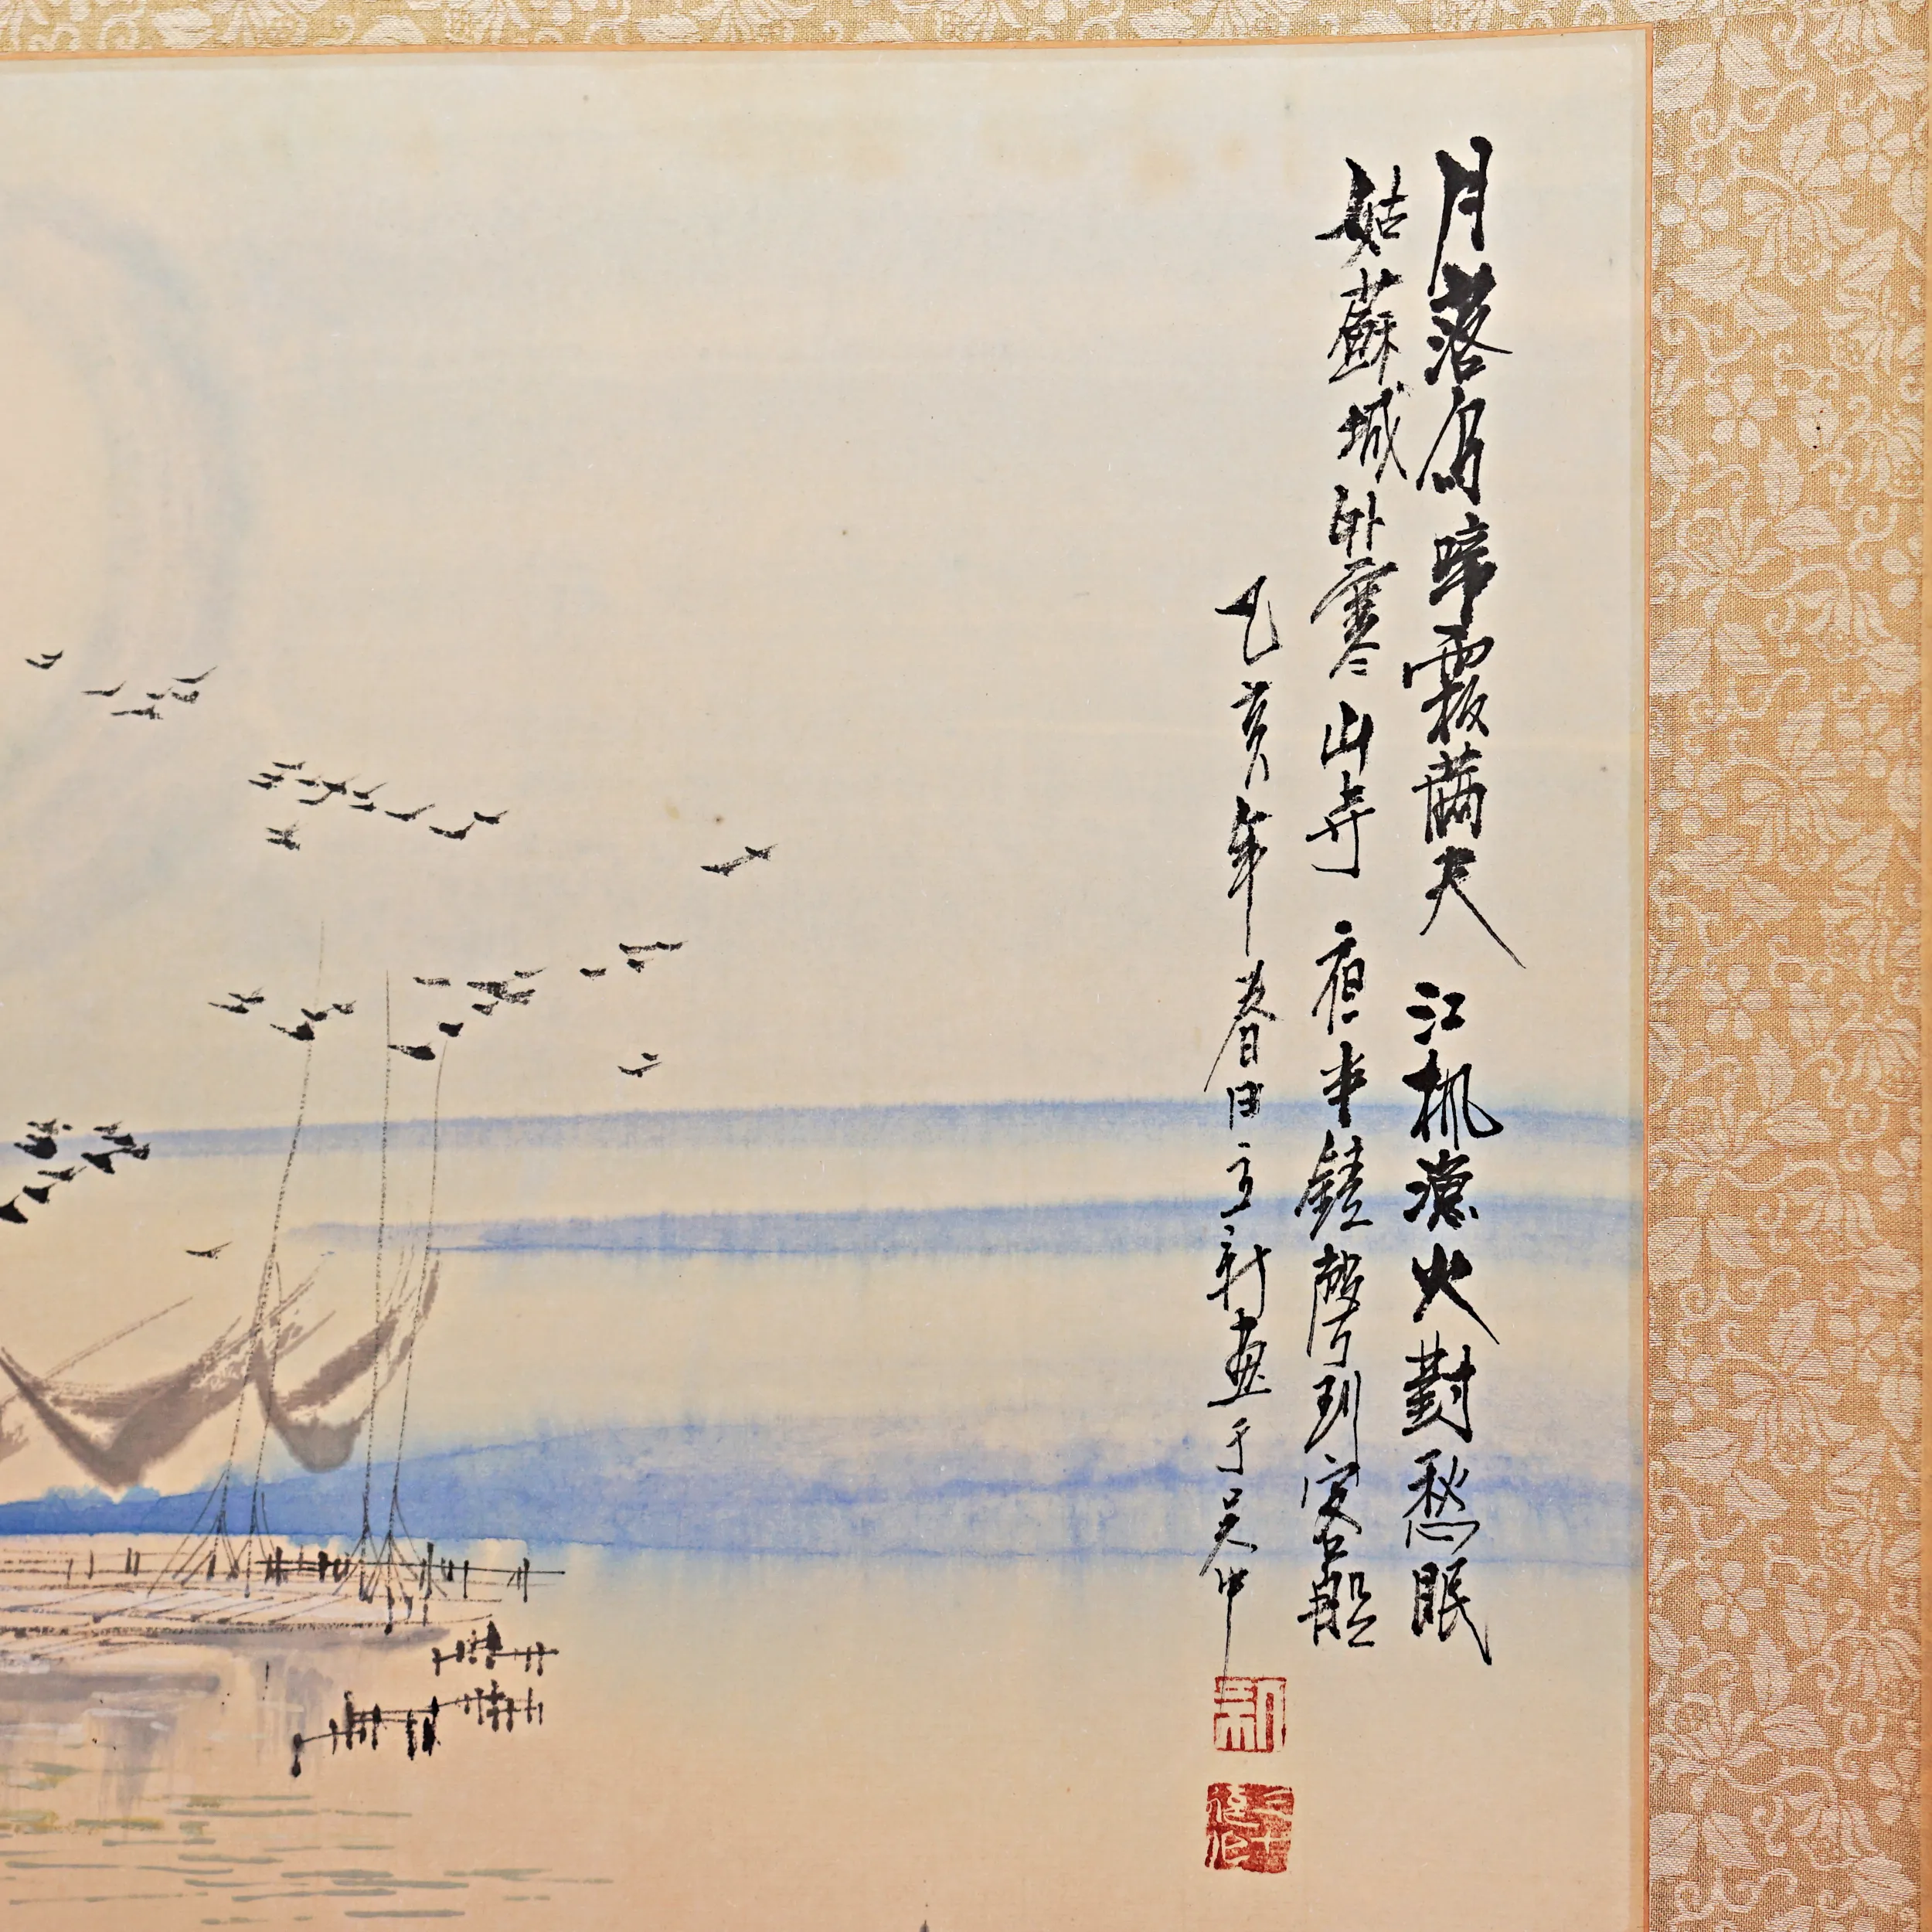 月落烏啼霜滿天 江楓漁火對愁眠
姑蘇城外寒山寺 夜半鐘聲到客船
乙亥年春日亨新畫于吳中
新